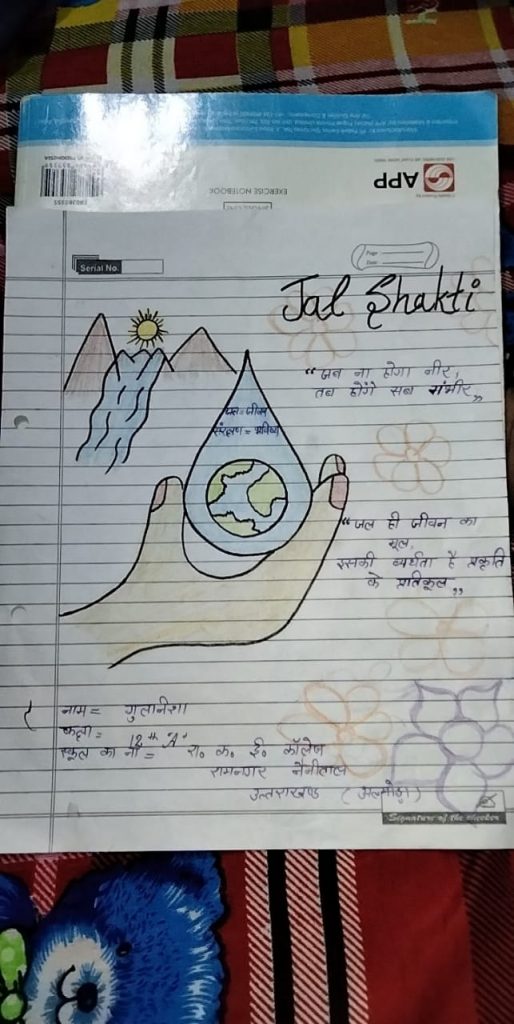 APP
EXERCISE NOTEBOOK
Serial No.
Page
Date
Jal Shakti
“जब ना होगा नीर,
तब होंगे सब गंभीर„
जल=जीवन
संरक्षण = भविष्य
“जल ही जीवन का
मूल,
इसकी व्यर्थता है प्रकृति
के प्रतिकूल„
नाम =
कक्षा = 12th 'A'
स्कूल का नाम = रा० क० ई० कॉलेज
रामनगर नैनीताल
उत्तराखण्ड (अल्मोड़ा)
Signature of the